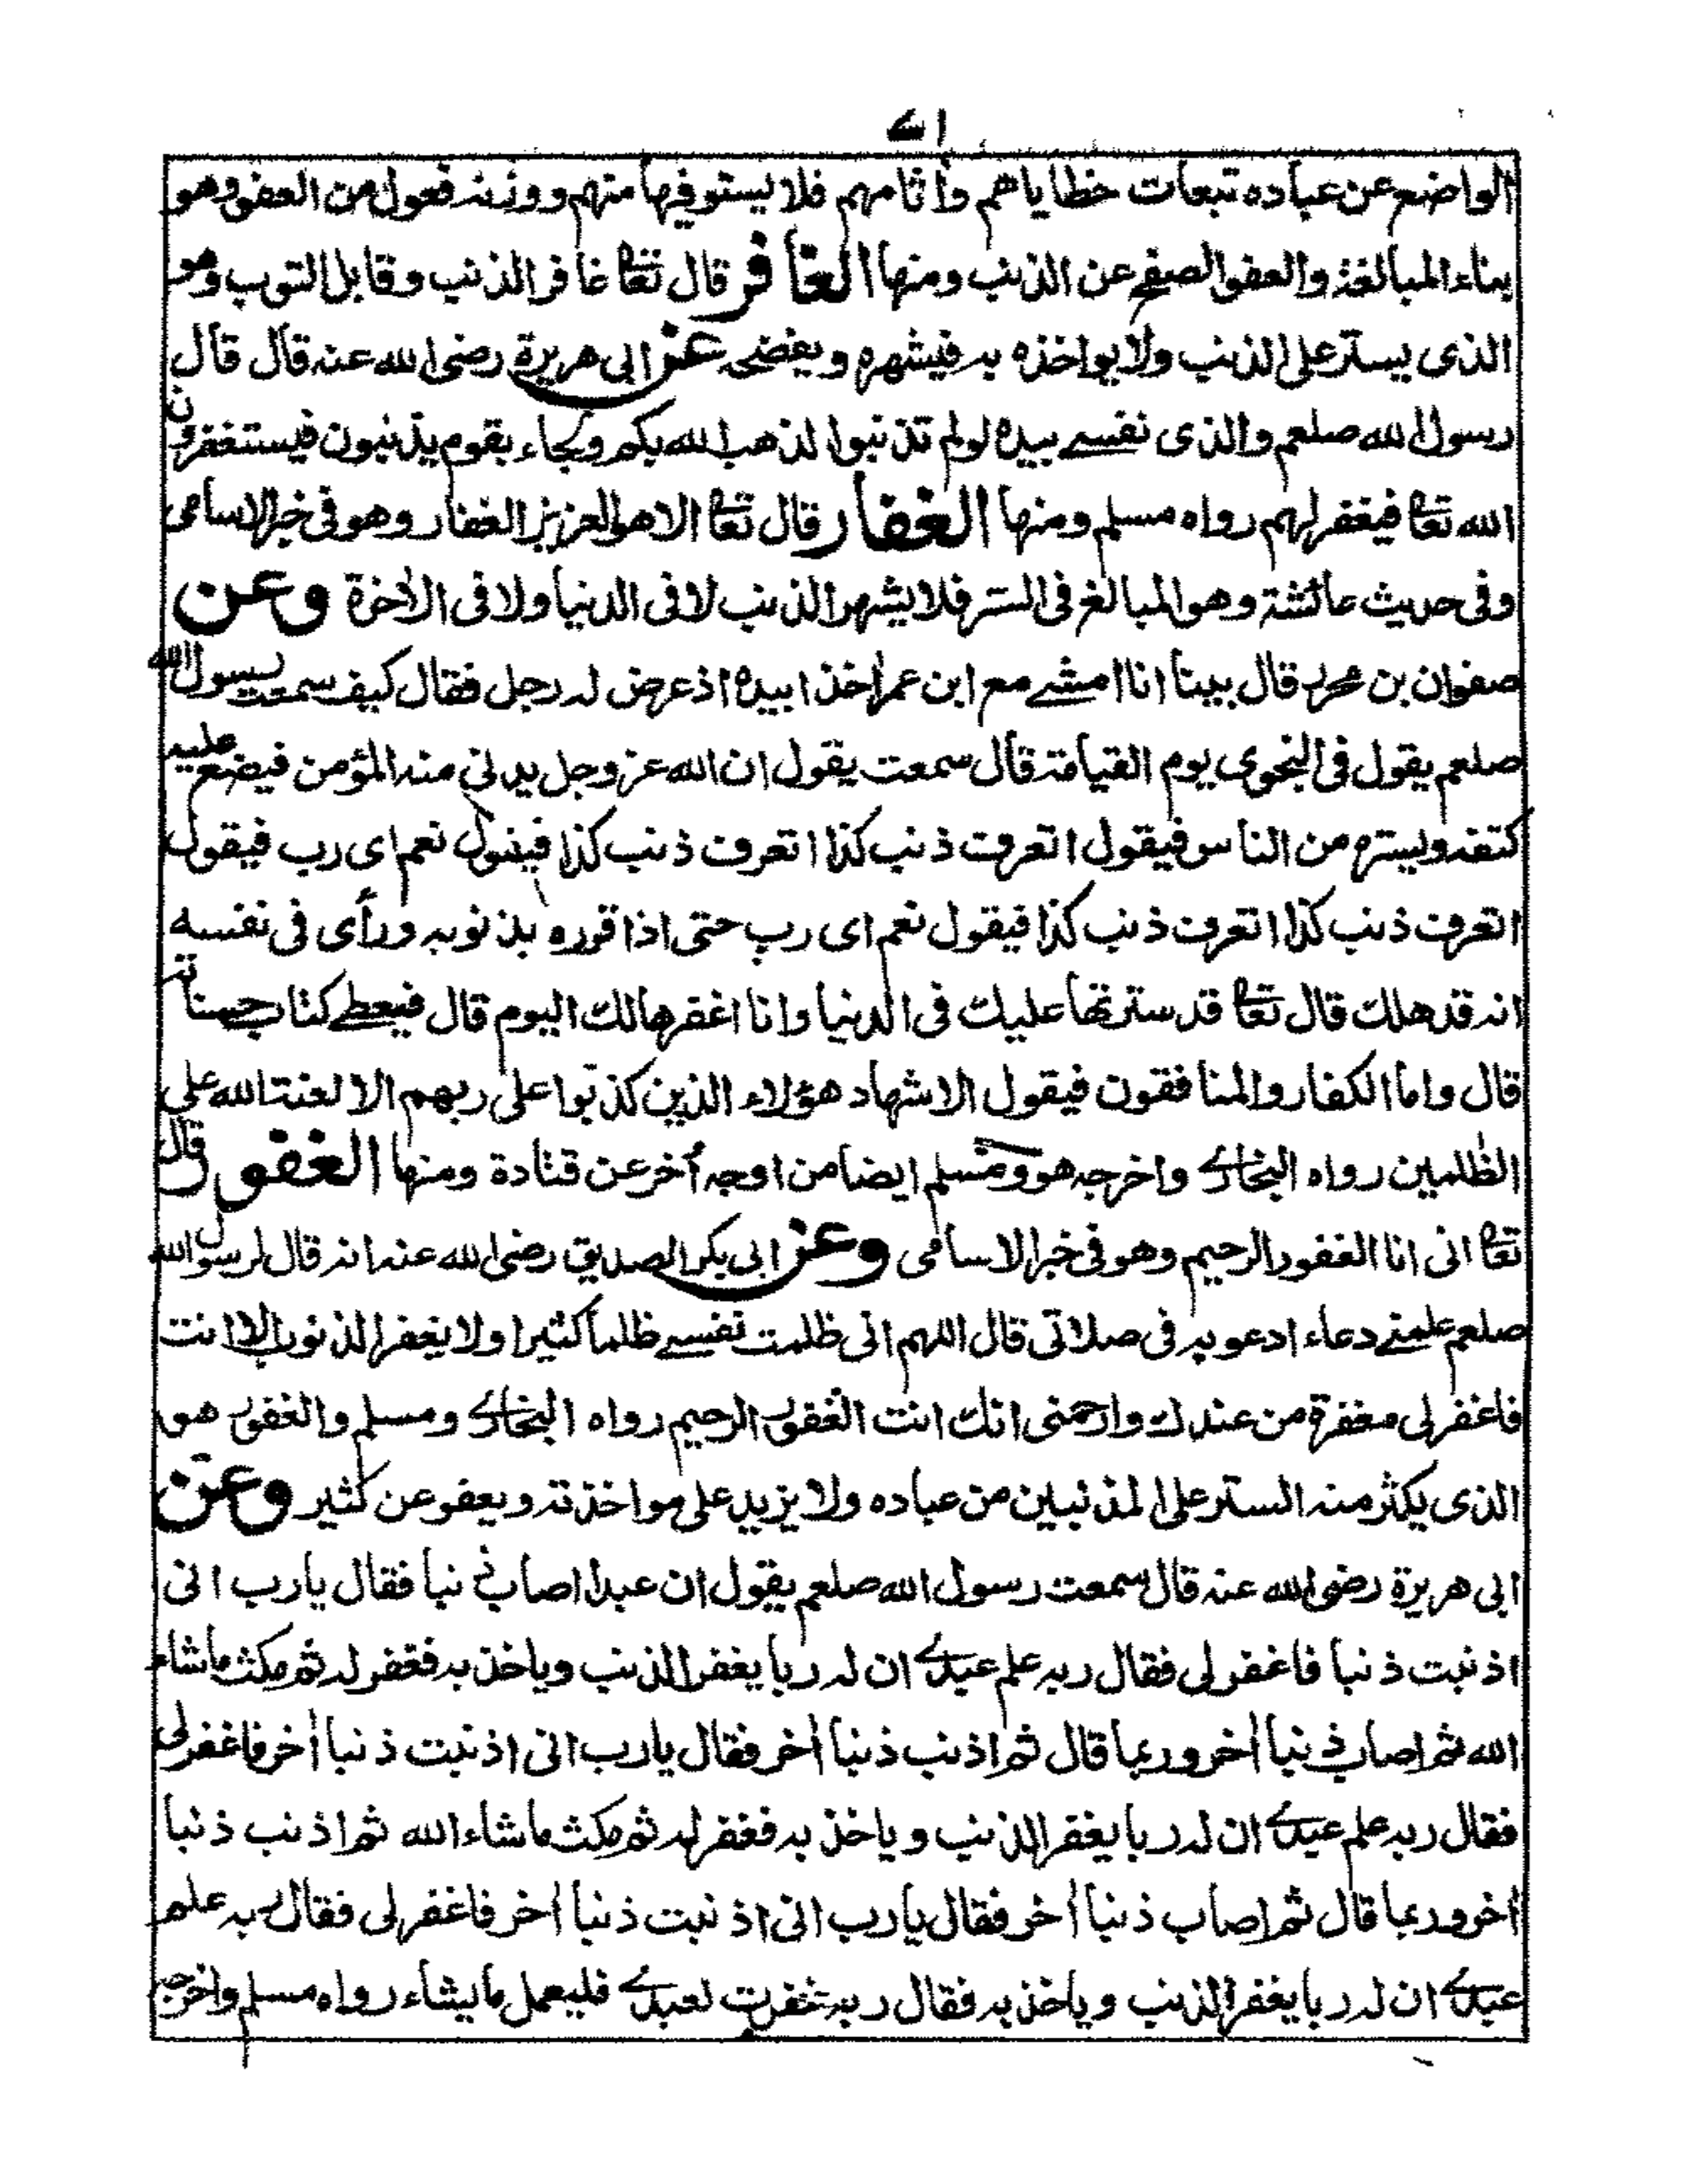 اے
الواضع عن عباده تبعات خطاياهم وأثامهم فلا يستوفيها منهم ووزنه فعول من العفو وهو
بناء المبالغة والعفو الصفح عن الذنب ومنها الغافر قال تعالى غافر الذنب وقابل التوب وهو
الذى يستر على الذنب ولا يواخذه به فيشهره ويفضحه عن ابى هريرة رضى الله عنه قال قال
رسول الله صلعم والذى نفسے بيده لولم تذنبوا لذهب الله بكم وجاء بقوم يذنبون فيستغفرون
الله تعالى فيغفر لهم رواه مسلم ومنها الغفار قال تعالى الا هو العزيز الغفار وهو فى خبر الاسامى
وفى حديث عائشة وهو المبالغ فى الستر فلا يشهر الذنب لا فى الدنيا ولا فى الأخرة وعن
صفوان بن محرز قال بينا انا امشے مع ابن عمر أخذا بيده اذ عرض له رجل فقال كيف سمعت رسول الله
صلعم يقول فى النجوى يوم القيامة قال سمعت يقول ان الله عز وجل يدنى منه المؤمن فيضع عليه
كنفه ويستره من الناس فيقول اتعرف ذنب كذا اتعرف ذنب كذا فيقول نعم اى رب فيقول
اتعرف ذنب كذا اتعرف ذنب كذا فيقول نعم اى رب حتى اذا قرره بذنوبه ورأى فى نفسه
انه قد هلك قال تعالى قد سترتها عليك فى الدنيا وانا اغفرها لك اليوم قال فيعطے كتاب حسناته
قال واما الكفار والمنافقون فيقول الاشهاد هؤلاء الذين كذبوا على ربهم الا لعنت الله على
الظلمين رواه البخارے واخرجه هو ومسلم ايضا من اوجه أخر عن قتادة ومنها الغفور قال
تعالى انى انا الغفور الرحيم وهو فى خبر الاسامى وعن ابى بكر الصديق رضى الله عنه انه قال لرسول الله
صلعم علمنے دعاء ادعو به فى صلاتى قال اللهم انى ظلمت نفسے ظلما كثيرا ولا يغفر الذنوب الا انت
فاغفر لى مغفرة من عندك وارحمنى انك انت الغفور الرحيم رواه البخارے ومسلم والغفور هو
الذى يكثر منه الستر على المذنبين من عباده ولا يزيد على مواخذته ويعفو عن كثير وعن
ابى هريرة رضى الله عنه قال سمعت رسول الله صلعم يقول ان عبدا اصاب ذنبا فقال يارب انى
اذنبت ذنبا فاغفر لى فقال ربه علم عبدے ان له ربا يغفر الذنب وياخذ به فغفر له ثم مكث ماشاء
الله ثم اصاب ذنبا أخر وربما قال ثم اذنب ذنبا أخر فقال يارب انى اذنبت ذنبا أخر فاغفر لى
فقال ربه علم عبدے ان له ربا يغفر الذنب وياخذ به فغفر له ثم مكث ماشاء الله ثم اذنب ذنبا
أخر وربما قال ثم اصاب ذنبا أخر فقال يارب انى اذنبت ذنبا أخر فاغفر لى فقال ربه علم
عبدے ان له ربا يغفر الذنب وياخذ به فقال ربه غفرت لعبدے فليعمل مايشاء رواه مسلم واخرجه